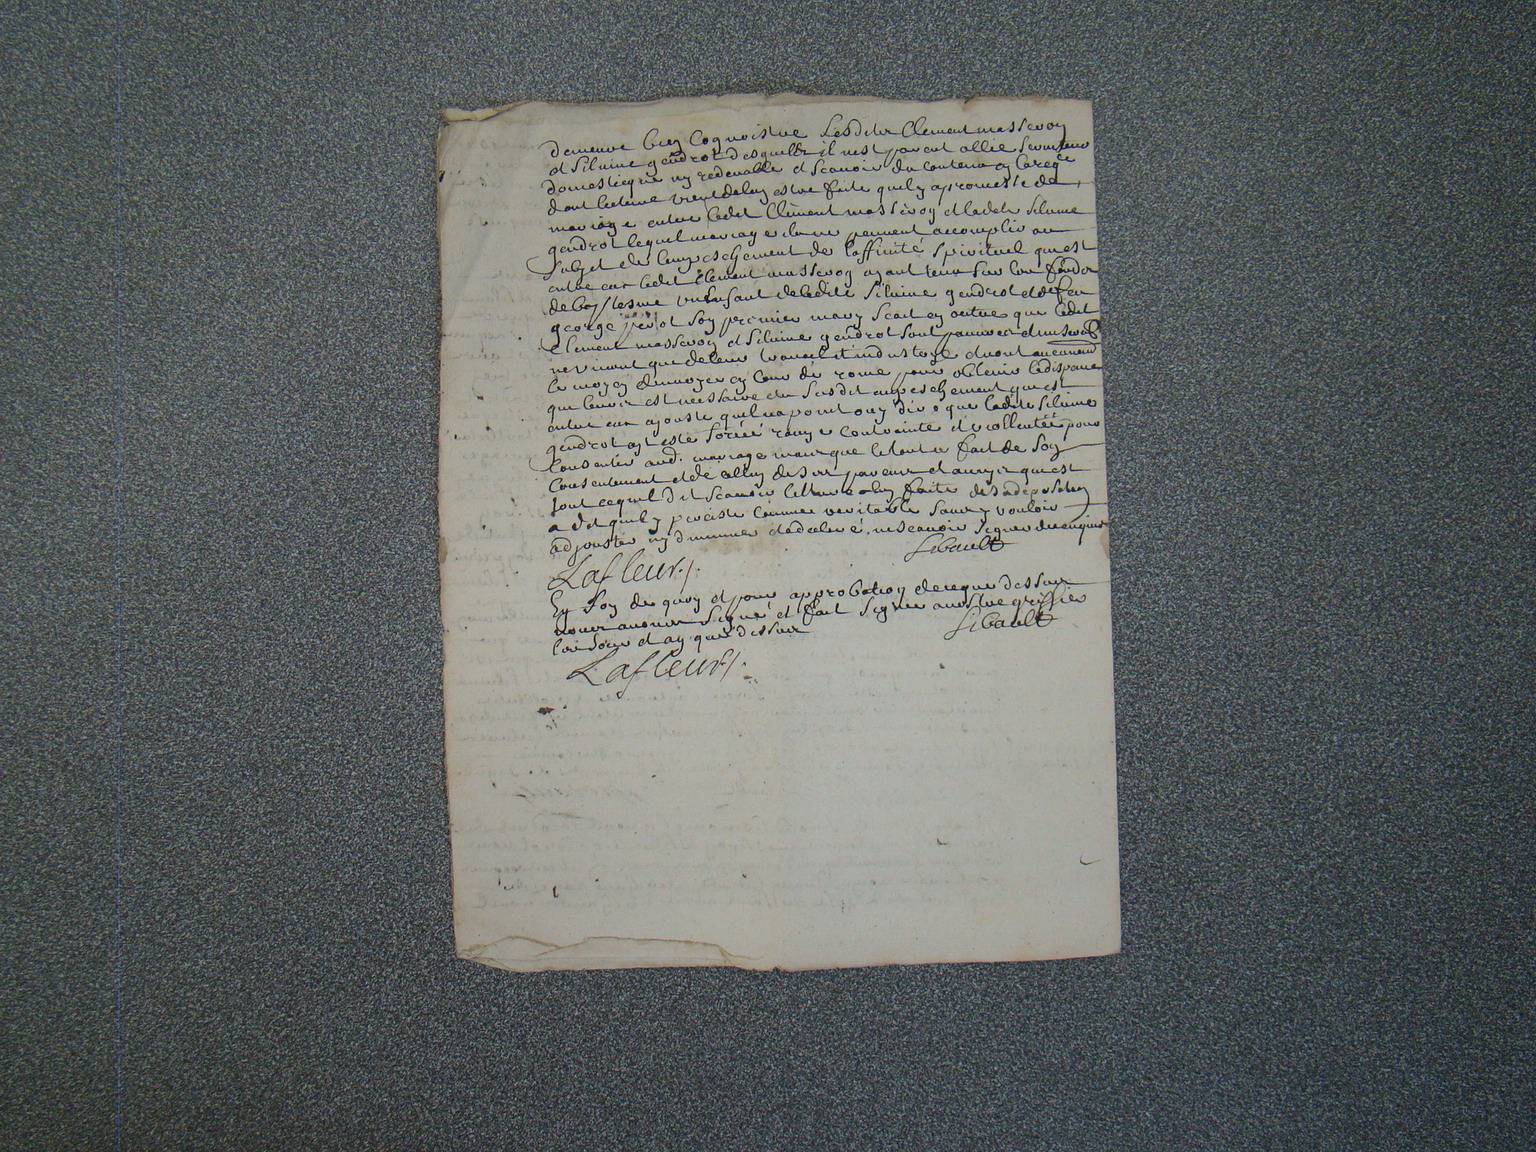 demeure bien Cognoistre Lesdits Clement massevoy
et Silvine gendrot desquels il nest parent allie serviteur
domesticque ny redevable et scavoir du contenu en la reqte
dont lecture vient deluy estre faite quil y a promesse de
mariage entre ledit Clement massevoy et ladite silvine
gendrot lequel mariage ils ne peuvent accomplir au
subjet de lempeschement de laffinité spirituel qui est
entre eux ledit Clement massevoy ayant tenu sur les fonds
de baptesme un enfant de ladite Silvine gendrot et de feu
george perot son premier mary scait en outre que ledit
Clement massevoy et silvine gendrot sont pauvres
ne vivant que de leur travail et industrie
le moyen denvoyer en Cour de rome pour obtenir la dispance
que leur est nessaire du susdit empeschement qui est
entre eux ajouste quil na point ouy dire que ladite silvine
gendrot ayt esté forcée contrainte et viollentée pour
Consentir aud. mariage mais que le tout se fait de son
Consentement et de celluy de ses parens et amys qui est
tout ce quil dit scavoir lecture a luy faite de sa deposition
a dit quil y persiste comme veritable sans y vouloir
adjouster ny diminuer et a declaré ne scavoir signer de ce enquis
Lafleur Sibault
En foy de quoy et pour approbation de ce que dessus
nous avons signé et fait signer a nostre greffier
les jour et an que dessus Sibault
Lafleur